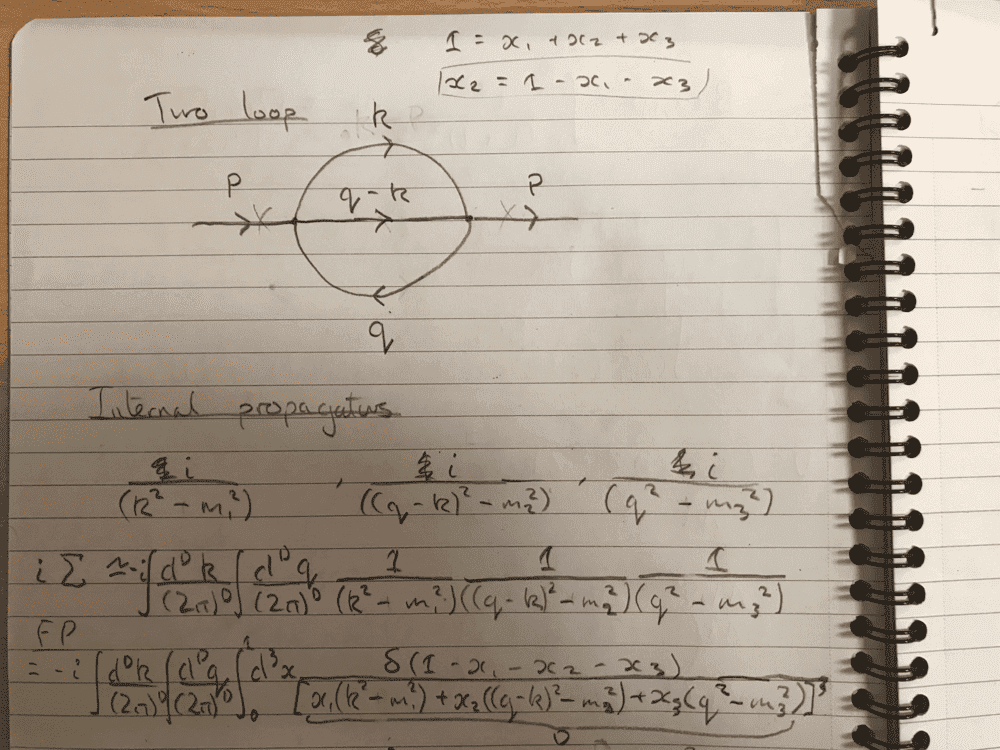 1 = x₁ + x₂ + x₃
x₂ = 1 - x₁ - x₃
Two loop
k
P q - k P
q
Internal propagators
i/(k² - m₁²) , i/((q - k)² - m₂²) , i/(q² - m₃²)
i Σ ≃ -i ∫ dᴰk/(2π)ᴰ ∫ dᴰq/(2π)ᴰ 1/(k² - m₁²) 1/((q - k)² - m₂²) 1/(q² - m₃²)
FP
= -i ∫ dᴰk/(2π)ᴰ ∫ dᴰq/(2π)ᴰ ∫₀¹ d³x δ(1 - x₁ - x₂ - x₃)/[x₁(k² - m₁²) + x₂((q - k)² - m₂²) + x₃(q² - m₃²)]³
D